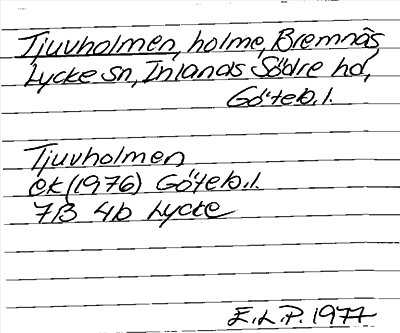 Tjuvholmen, holme, Bremnäs
Lycke sn, Inlands Södre hd,
Göteb. l.
Tjuvholmen
ek (1976) Göteb. l.
7B 4b Lycke
E.L.P. 1977